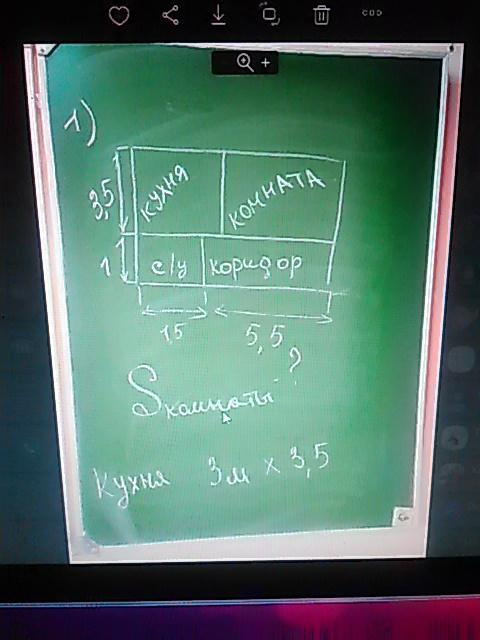 1)
КУХНЯ КОМНАТА
3,5
1 с/у коридор
1,5 5,5
Sкомнаты ?
Кухня 3м × 3,5